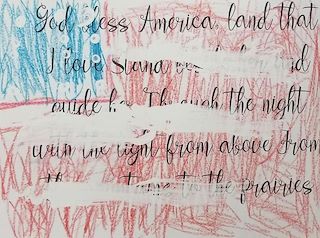 God bless America, land that
I love Stand
guide her Through the night
with the light from above From
the to the prairies